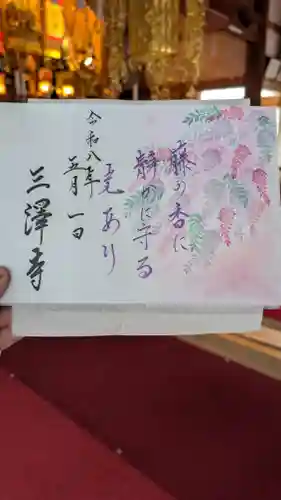 藤の香に
静かに守る
亮あり
令和八年
五月一日
三澤寺